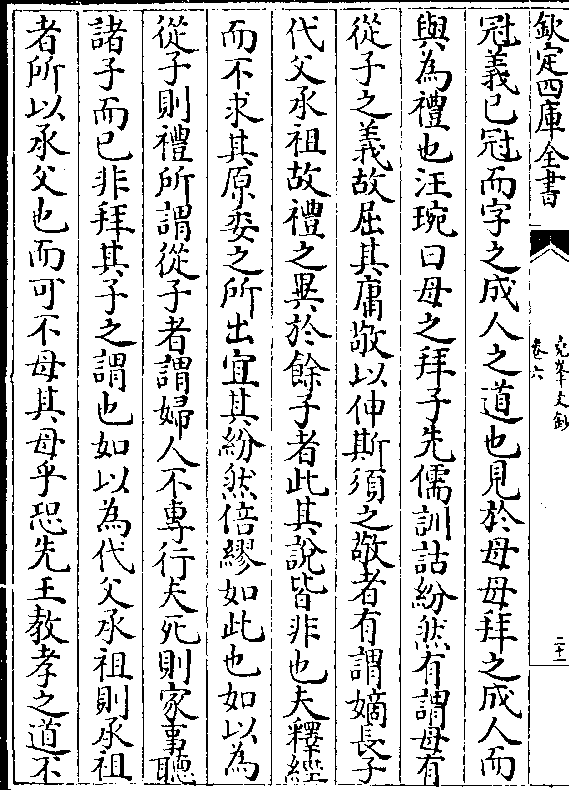 欽定四庫全書
堯峯文鈔
卷六
二十一
冠義已冠而字之成人之道也見於母母拜之成人而
與為禮也汪琬曰母之拜子先儒訓詁紛然有謂母有
從子之義故屈其庸敬以伸斯須之敬者有謂嫡長子
代父承祖故禮之異於餘子者此其說皆非也夫釋經
而不求其原委之所出宜其紛然倍繆如此也如以為
從子則禮所謂從子者謂婦人不專行夫死則家事聽
諸子而已非拜其子之謂也如以為代父承祖則承祖
者所以承父也而可不母其母乎恐先王教孝之道不